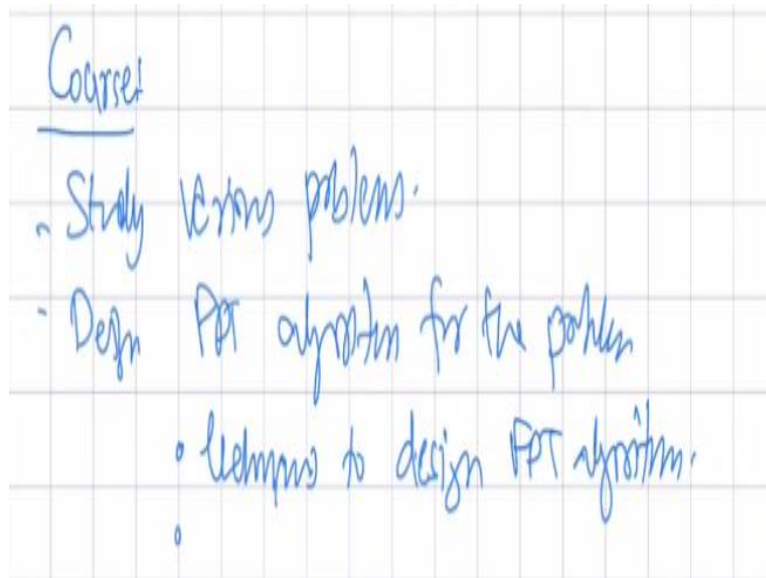 Course:
- Study various problems.
- Design FPT algorithm for the problem
• techniques to design FPT algorithm.
•